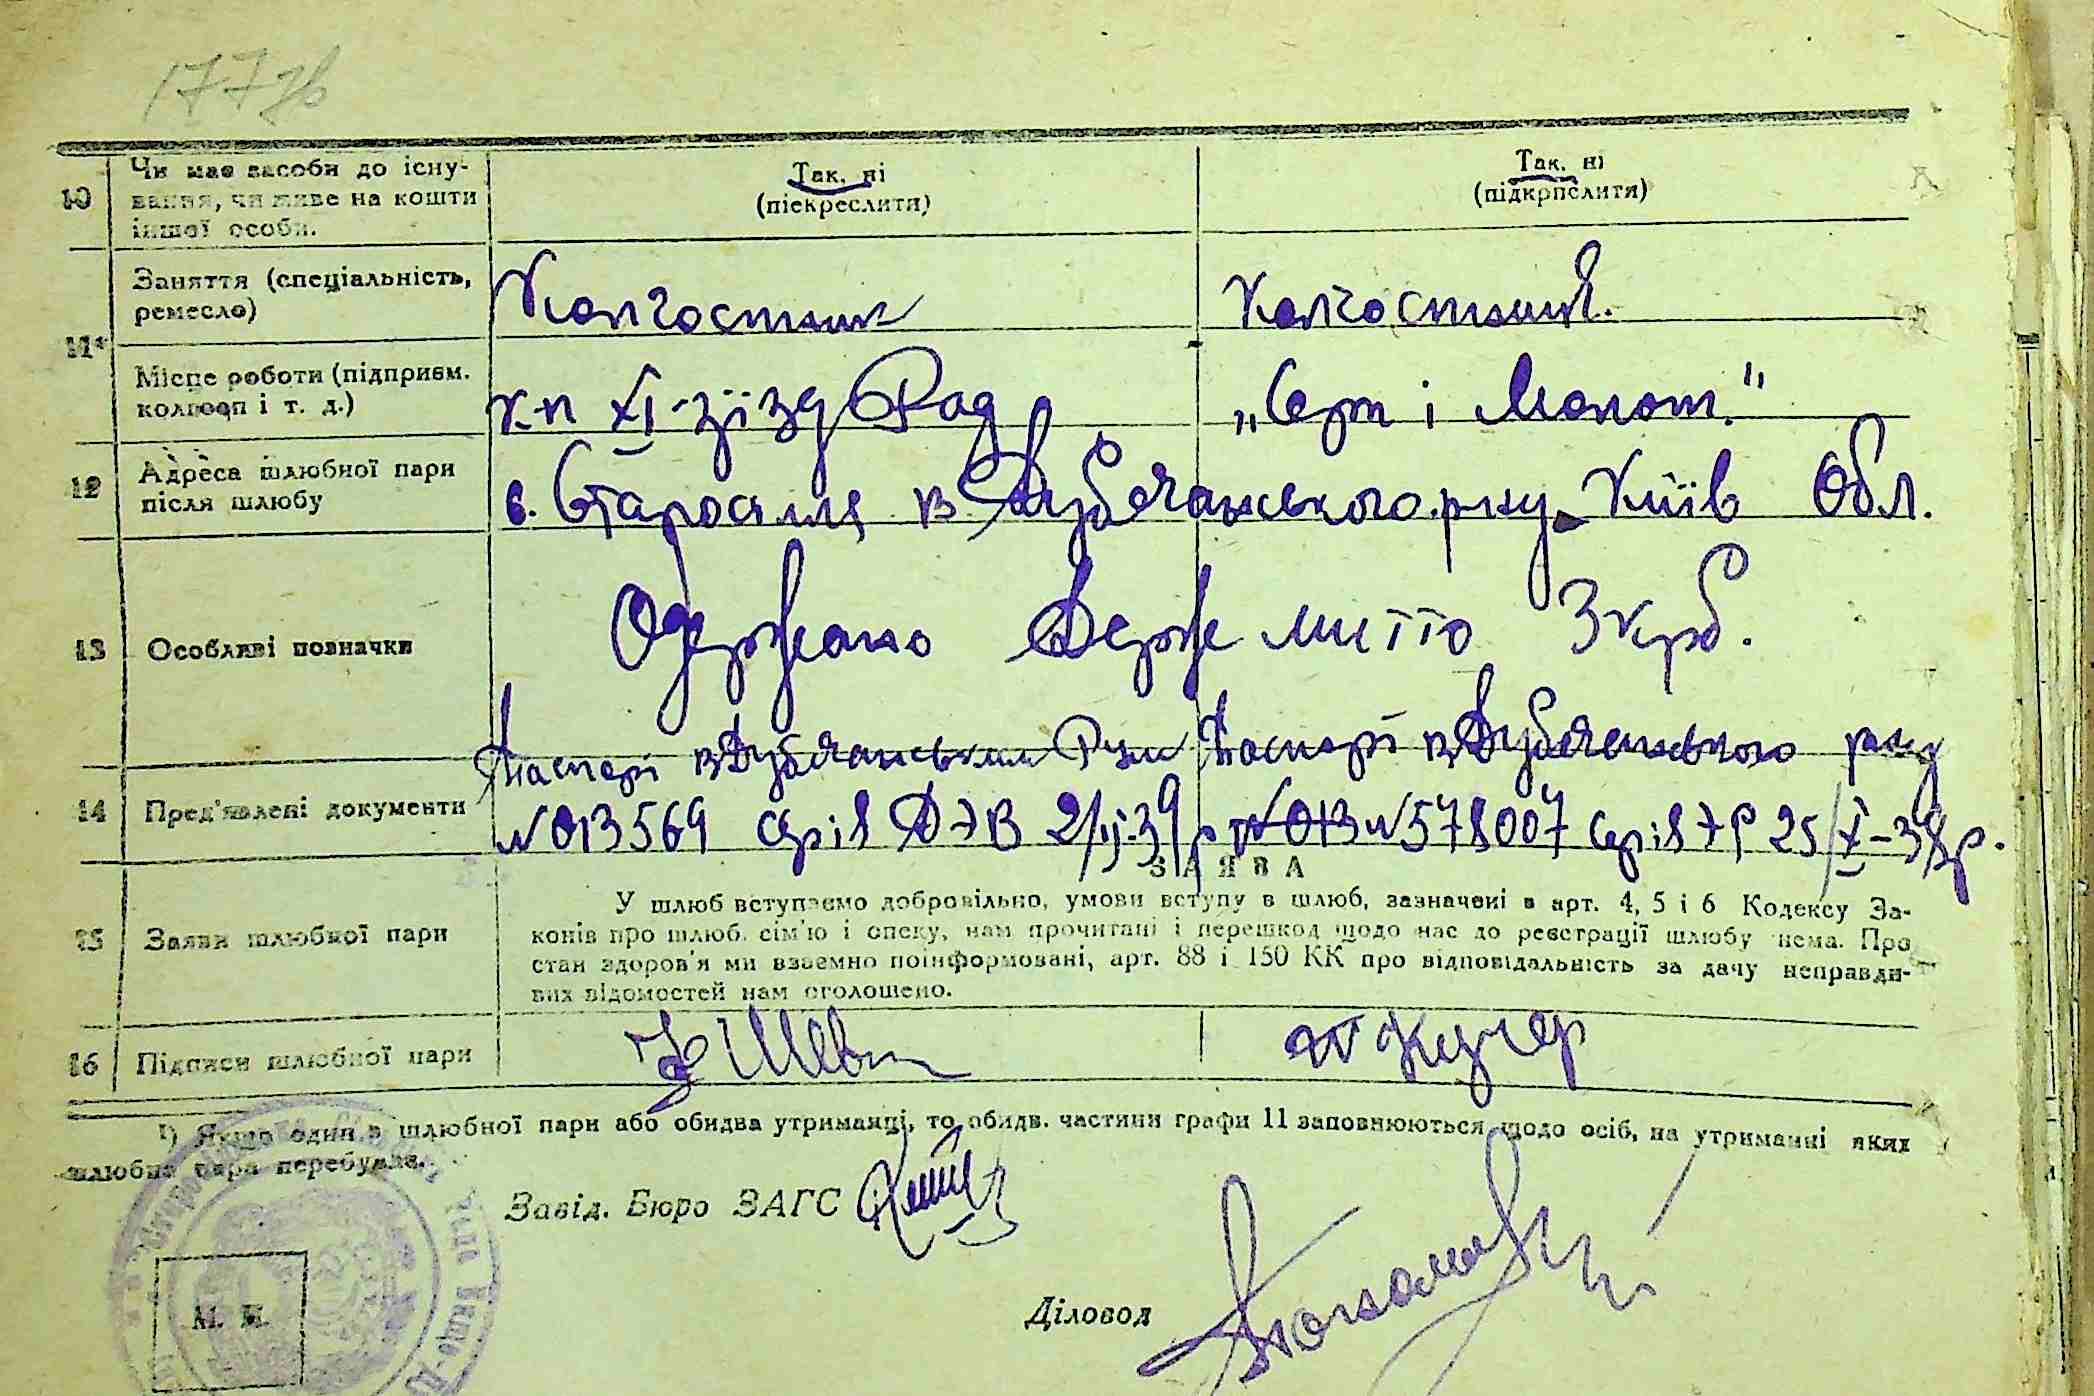 177зв
10 Чи має засоби до існу- Так, ні Так, ні
вання, чи живе на кошти (піекреслити) (підкрпслити)
іншої особи.
Заняття (спеціальність, Колгоспник Колгоспниця.
ремесло)
11¹
Місце роботи (підприєм. к-п XI-з'їзд Рад „Серп і Молот."
колгосп і т. д.)
12 Адреса шлюбної пари с. Старосілля В Дубечанського р-ну Київ Обл.
після шлюбу
13 Особливі позначки Одержано Держ мито 3 крб.
Паспорт В Дубечанським Паспорт В Дубечанського
14 Пред'явлені документи №013569 серія ДЭВ №578007 серія
ЗАЯВА
У шлюб вступаємо добровільно, умови вступу в шлюб, зазначені в арт. 4, 5 і 6 Кодексу За-
15 Заяви шлюбної пари конів про шлюб. сім'ю і опеку, нам прочитані і перешкод щодо нас до реєстрації шлюбу нема. Про
стан здоров'я ми взаємно поінформовані, арт. 88 і 150 КК про відповідальність за дачу неправди-
вих відомостей нам оголошено.
16 Підписи шлюбної пари Шев Кучер
¹) Якщо один з шлюбної пари або обидва утриманці, то обидв. частини графи 11 заповнюються щодо осіб, на утриманні яких
шлюбна пара перебуває.
Завід. Бюро ЗАГС
М. П.
Діловод